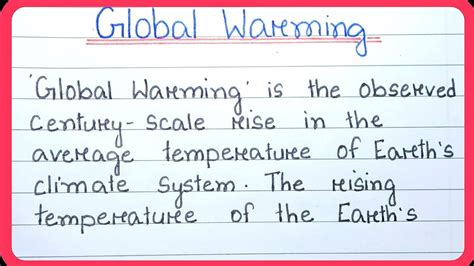 Global Warming
'Global Warming' is the observed
century-scale rise in the
average temperature of Earth's
climate system. The rising
temperature of the Earth's